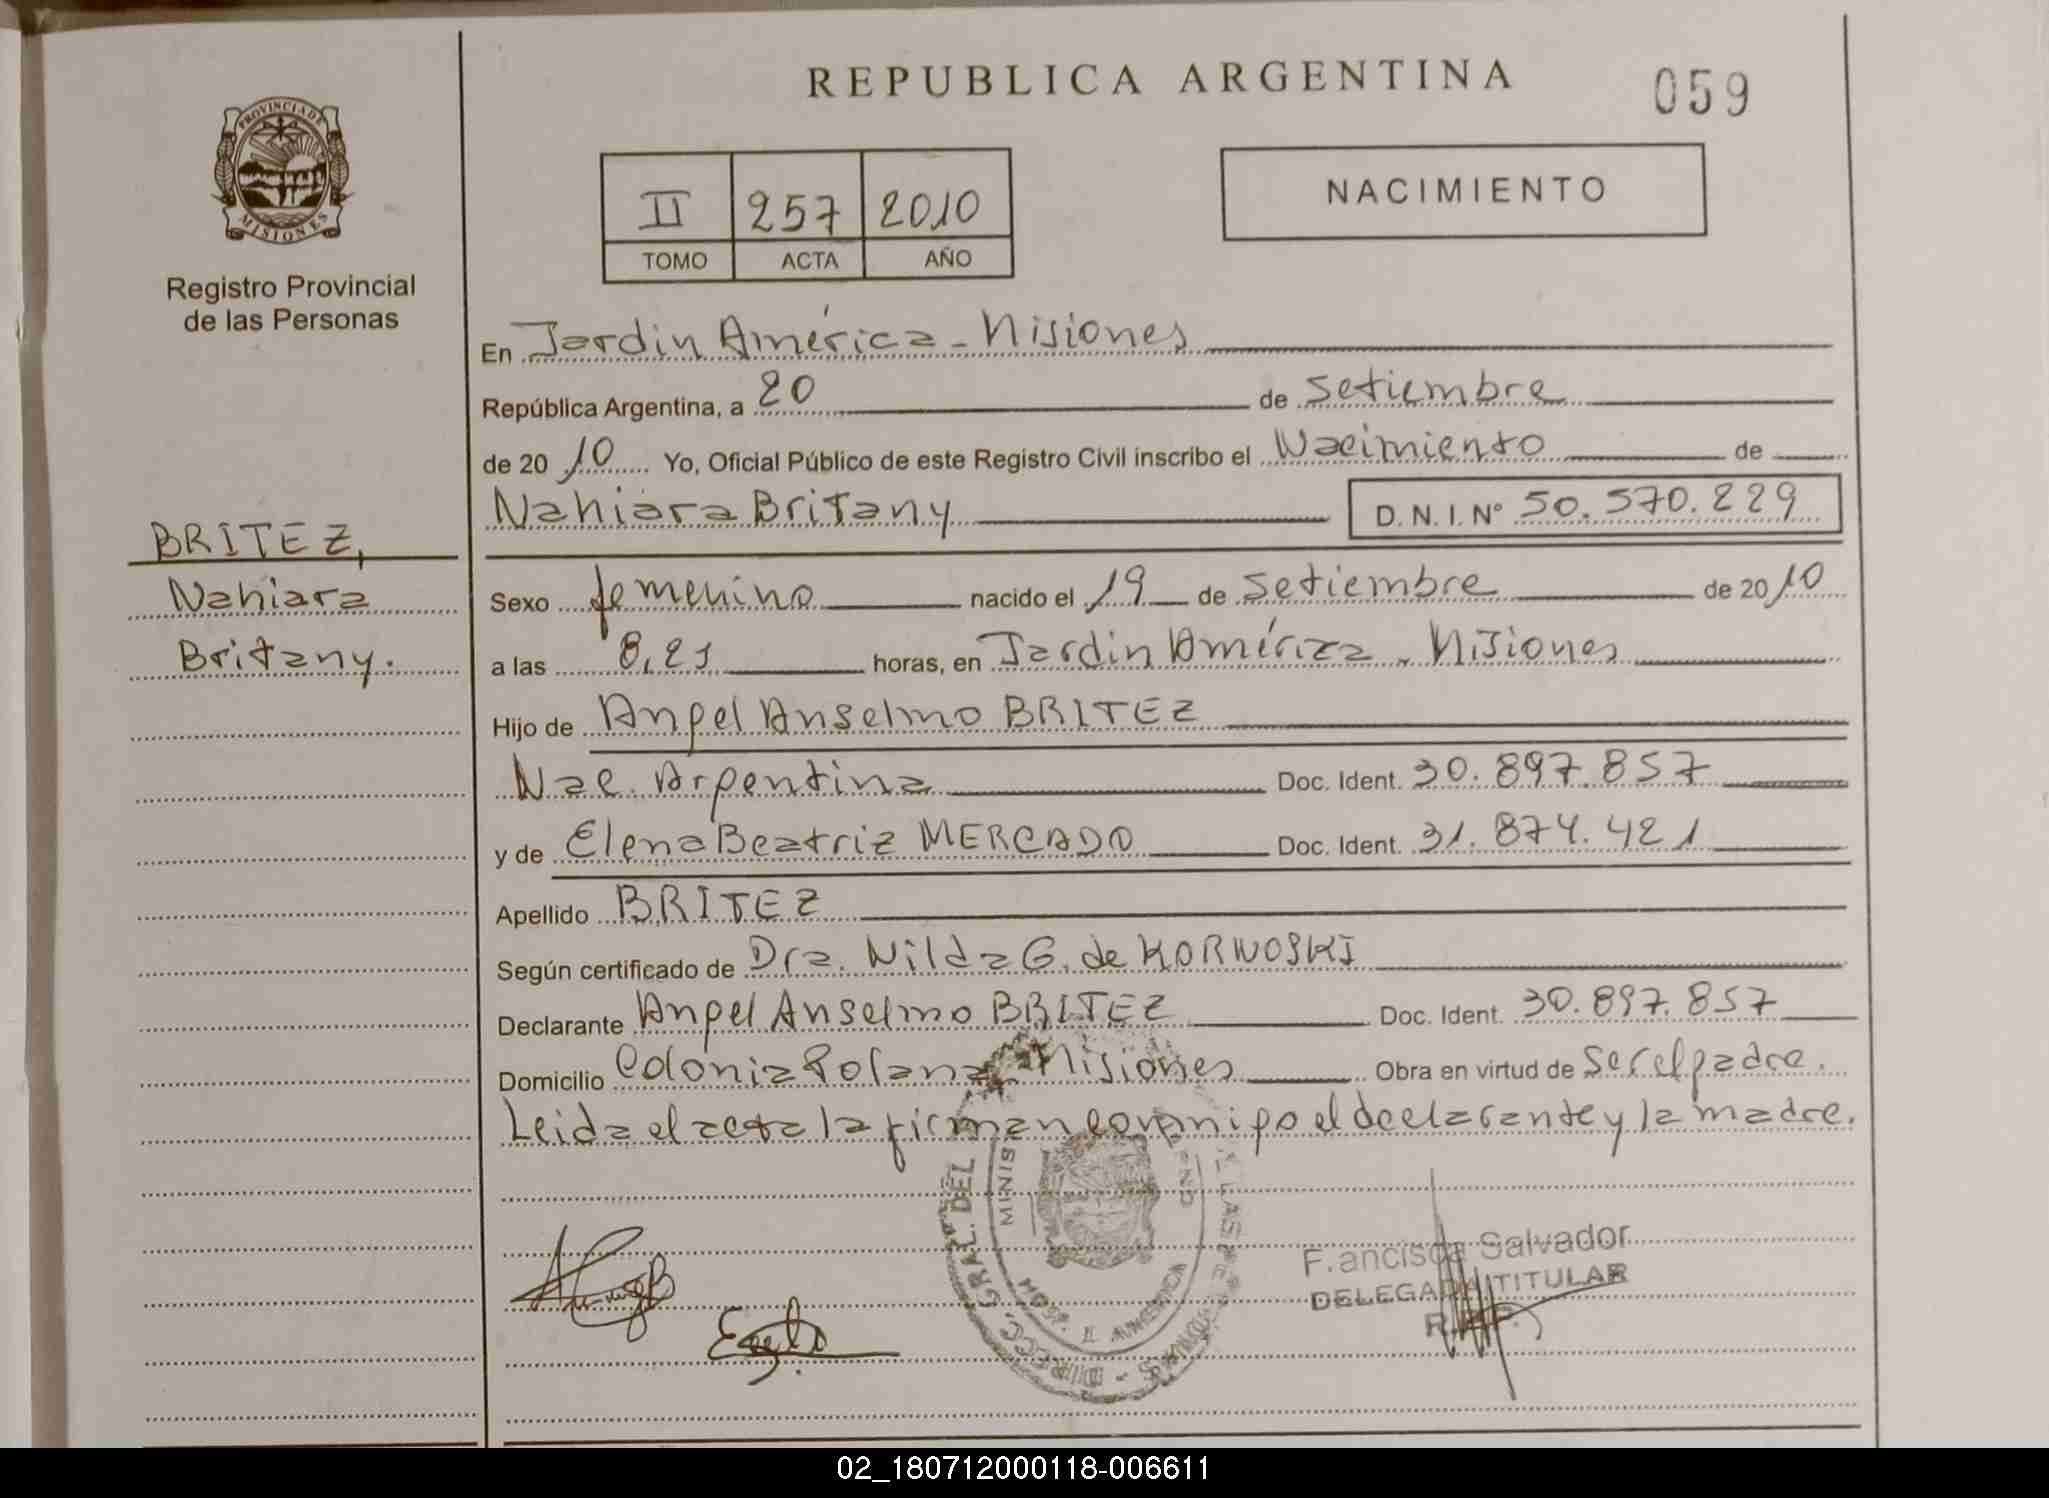 REPUBLICA ARGENTINA
059
PROVINCIA DE
MISIONES
Registro Provincial
de las Personas
II 257 2010
TOMO ACTA AÑO
NACIMIENTO
En Jardin América - Misiones
República Argentina, a 20 de Setiembre
de 20 10 Yo, Oficial Público de este Registro Civil inscribo el Nacimiento de
Nahiara Britany D.N.I. Nº 50.570.229
BRITEZ,
Nahiara
Britany.
Sexo femenino nacido el 19 de Setiembre de 20 10
a las 8,21 horas, en Jardin América - Misiones
Hijo de Angel Anselmo BRITEZ
Nac. Argentina Doc. Ident. 30.897.857
y de Elena Beatriz MERCADO Doc. Ident. 31.874.421
Apellido BRITEZ
Según certificado de Dra. Nilda G. de KORNOSKI
Declarante Angel Anselmo BRITEZ Doc. Ident. 30.897.857
Domicilio Colonia Polana Misiones Obra en virtud de Ser el padre.
Leida el acta la firman conmigo el declarante y la madre.
DIREC. GRAL. DEL
MINIS
Francisca Salvador
DELEGADA TITULAR
02_180712000118-006611